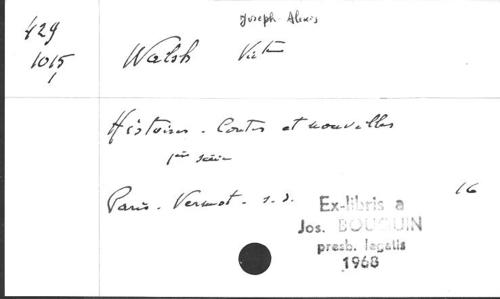 Joseph-Alexis
429
1015
1
Walsh Victe
Histoires - Contes et nouvelles
1ère série
Paris - Vermot - s.d. 16
Ex-libris a
Jos. BOUQUIN
presb. legatis
1968